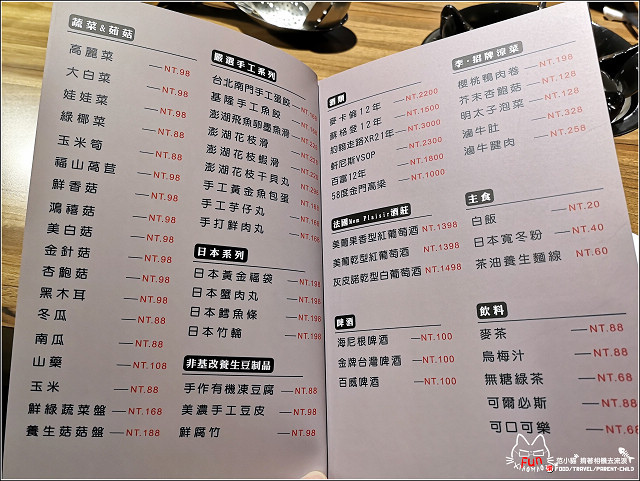 蔬菜&茹菇
高麗菜 —NT.98
大白菜 —NT.98
娃娃菜 —NT.98
綠椰菜 —NT.98
玉米筍 —NT.98
福山萵苣 —NT.98
鮮香菇 —NT.98
鴻禧菇 —NT.98
美白菇 —NT.98
金針菇 —NT.98
杏鮑菇 —NT.98
黑木耳 —NT.98
冬瓜 —NT.88
南瓜 —NT.88
山藥 —NT.108
玉米 —NT.88
鮮綠蔬菜盤 —NT.168
養生菇菇盤 —NT.188
嚴選手工系列
台北南門手工蛋餃
基隆手工魚餃
澎湖飛魚卵墨魚滑
澎湖花枝滑
澎湖花枝蝦滑
澎湖花枝干貝丸
手工黃金魚包蛋
手工芋仔丸
手打鮮肉丸
日本系列
日本黃金福袋 —NT.198
日本蟹肉丸 —NT.198
日本鱈魚條 —NT.198
日本竹輪 —NT.198
非基改養生豆制品
手作有機凍豆腐 —NT.88
美濃手工豆皮 —NT.98
鮮腐竹 —NT.98
麥卡倫12年 —NT.2200
蘇格登12年 —NT.1500
約翰走路XR21年 —NT.3000
軒尼斯VSOP —NT.2300
百富12年 —NT.1800
58度金門高梁 —NT.1000
法國Mon Plaisir酒莊
美蘭果香型紅葡萄酒 —NT.1398
美蘭乾型紅葡萄酒 —NT.1398
灰皮諾乾型白葡萄酒 —NT.1498
啤酒
海尼根啤酒 —NT.100
金牌台灣啤酒 —NT.100
百威啤酒 —NT.100
李·招牌涼菜
櫻桃鴨肉卷 —NT.198
芥末杏鮑菇 —NT.128
明太子泡菜 —NT.128
滷牛肚 —NT.328
滷牛腱肉 —NT.258
主食
白飯 —NT.20
日本寬冬粉 —NT.40
茶油養生麵線 —NT.60
飲料
麥茶 —NT.88
烏梅汁 —NT.88
無糖綠茶 —NT.68
可爾必斯 —NT.88
可口可樂 —NT.88
FUN
XIAOMAO
范小貓 揹著相機去流浪
FOOD/TRAVEL/PARENT-CHILD